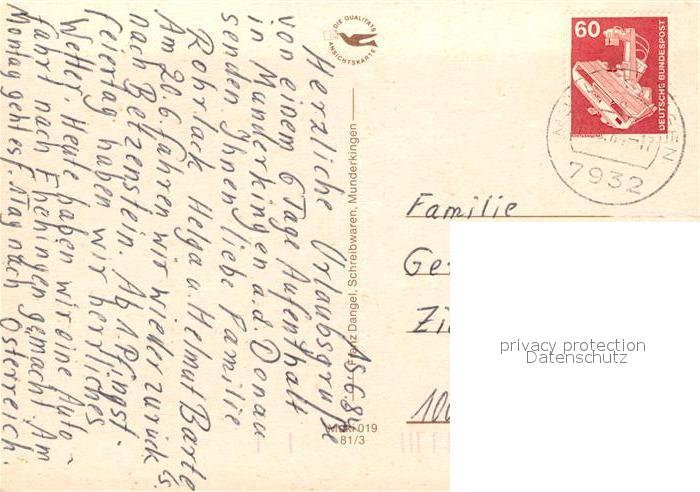 15.6.84
Herzliche Urlaubsgrüße
von einem 6 Tage Aufenthalt
in Munderkingen a.d. Donau
senden Ihnen liebe Familie
Rohrlack Helga u. Helmut Barte
Am 20.6 fahren wir wieder zurück
nach Betzenstein. Ab 1. Pfingst-
feiertag haben wir herrliches
Wetter. Heute haben wir eine Auto-
fahrt nach Ehehingen gemacht. Am
Montag geht es f. 1 Tag nach Österreich.
DIE QUALITÄTS
ANSICHTSKARTE
Franz Dangel, Schreibwaren, Munderkingen
019
81/3
60
DEUTSCHE BUNDESPOST
7932
Familie
privacy protection
Datenschutz